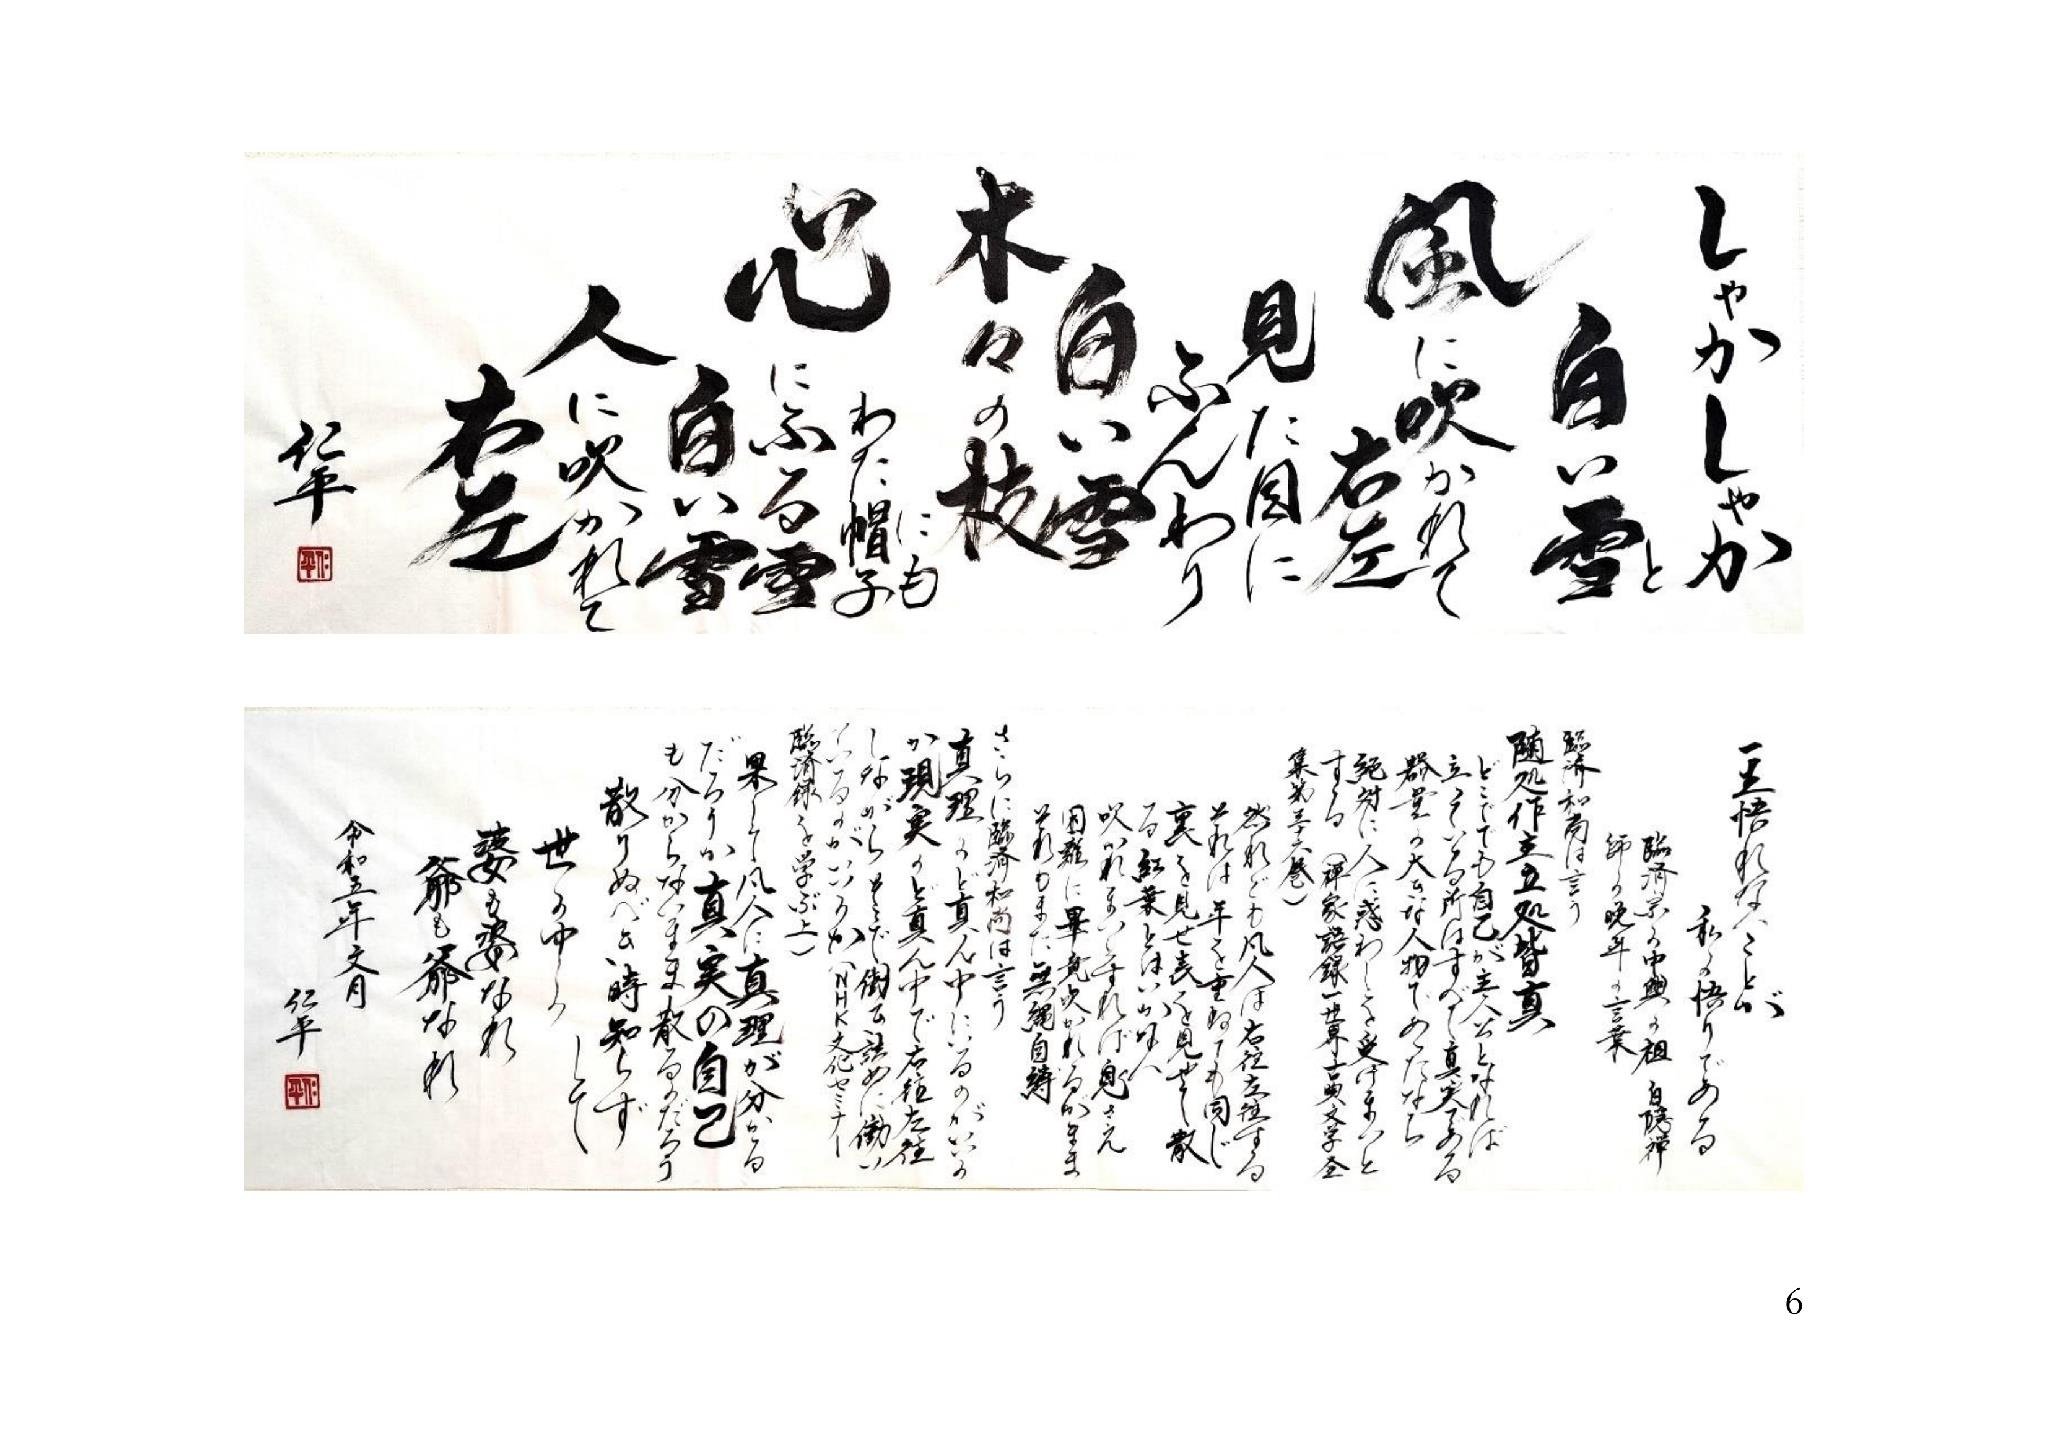 しゃかしゃか
白い雪と
風に吹かれて
右左
見た目に
ふんわり
白い雪
木々の枝
にも
わた帽子
心にふる雪
白い雪
人に吹かれて
右左
仁平
仁平
悟れないことが
私の悟りである
臨済宗の中興の祖 白隠禅
師の晩年の言葉
臨済和尚は言う
随処作主立処皆真
どこででも自己が主人公となれば
立っている所はすべて真実である
器量の大きな人物であったなら
絶対に人に惑わしを受けまいと
する (禅家語録一世界古典文学全
集第三十六巻)
然れども凡人は右往左往する
それは年を重ねても同じ
裏を見せ表を見せて散
る紅葉とはいかない
吹かれまいとすれば
困難に畢竟吹かれるがまま
それもまた無縄自縛
さらに臨済和尚は言う
真理のど真ん中にいるのがいい
か現実のど真ん中で右往左往
しながらそこで働き詰めに働い
ているのがいいのか(NHK文化セミナー
臨済録を学ぶ上)
果して凡人に真理が分かる
だろうか真実の自己
も分からないまま散るのだろう
散りぬべき時知らず
して
世の中の
婆も婆なれ
爺も爺なれ
令和五年文月
仁平
仁平
6